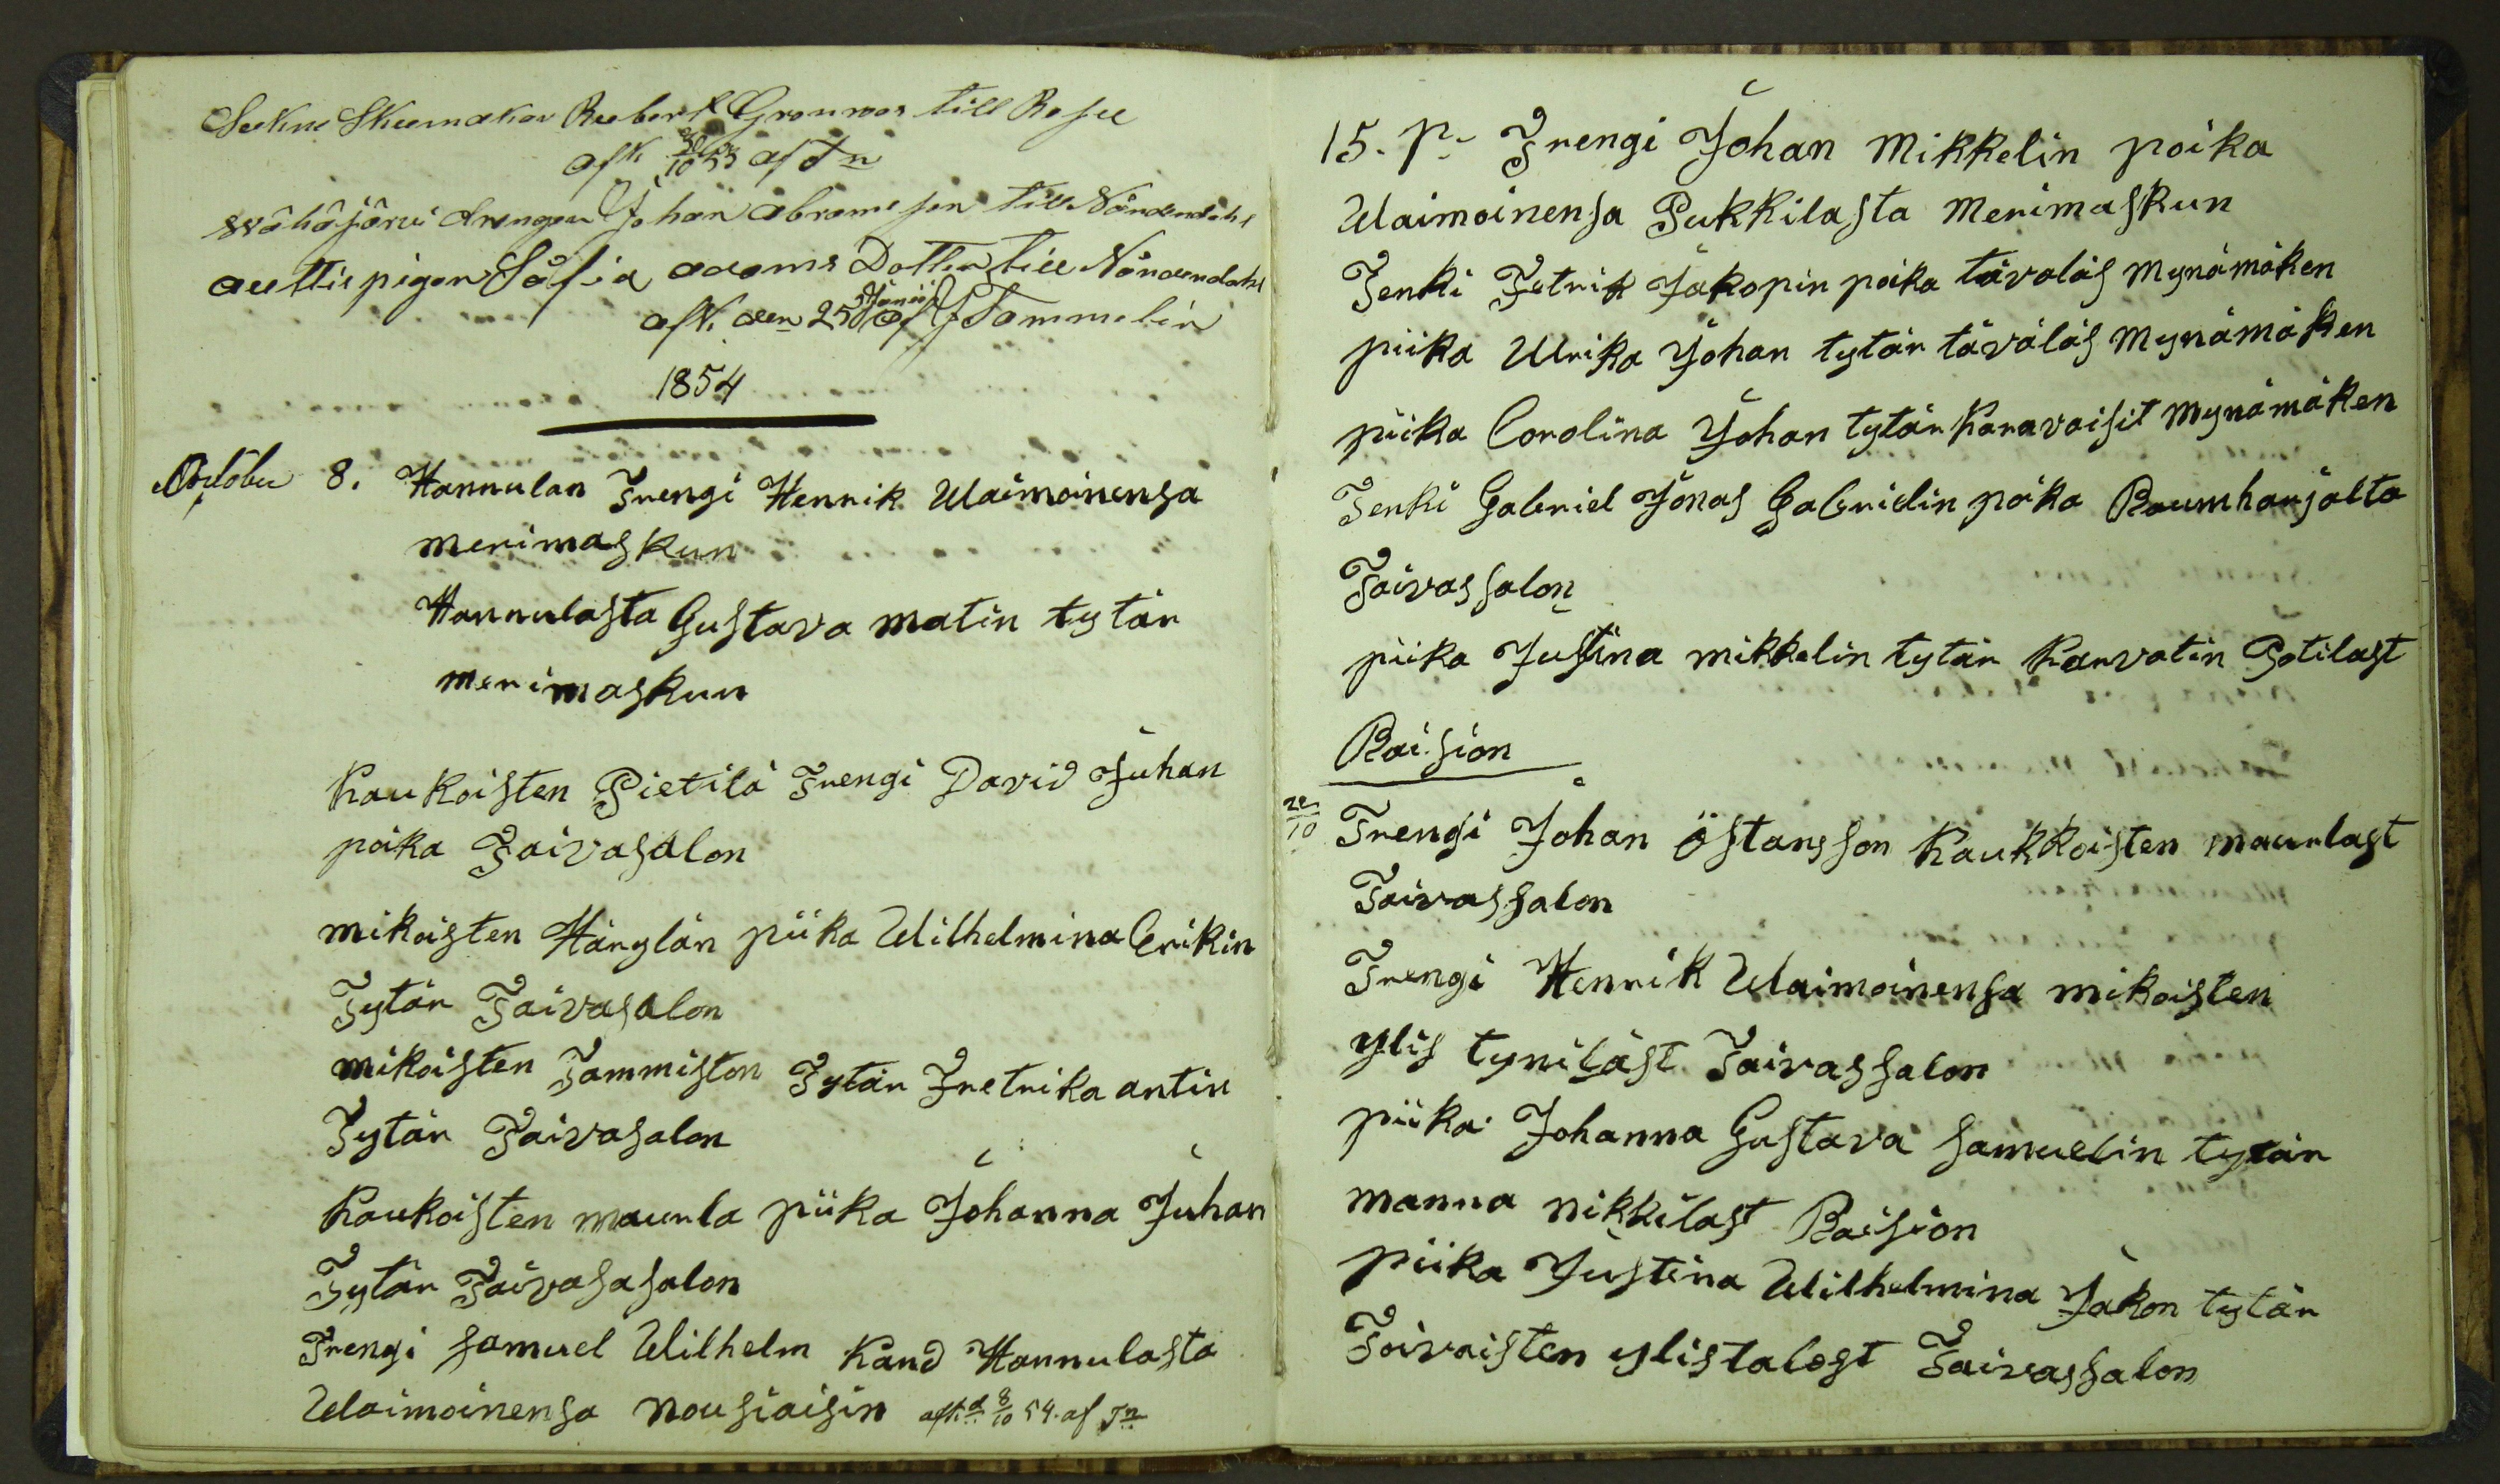 Skomakar Robert Grönroos till Reso
afk. 30/10 53 af Tn
wähäjärvi drengen Johan abramsson till Nändendahl
auttis pigan Sofia adams Dotter till Nåndendahl
afk. den 25 Junii af J Tammelin
1854
October 8. Hannulan Trengi Henrik Waimoinensa
merimaskun
Hannulasta Gustava matin tytär
merimaskun
Kaukoisten Pietilä Trengi David Juhan
poika Taivasalon
mikoisten Härylän piika Wilhelmina Erikin
Tytär Taivasalon
mikoisten Tammiston Tytär Fretrika antin
Tytär Taivasalon
Kaukoisten maurla piika Johanna Juhan
Tytär Taivasasalon
Trengi Samuel Wilhelm Kand Hannulasta
Waimoinensa nousiaisin afk. d 8/10 54. af Tn
15. p. Trengi Johan Mikkelin poika
Waimoinensa Pukkilasta Merimaskun
Tenki Fetrik Jakopin poika tävoläs Mynämäken
piika Ulrika Johan tytär täväläs Mynämäken
piika Carolina Johan tytär Karavaisit Mynämäken
Tenki Gabriel Jonas Gabrielin poika Raumharjalta
Taivassalon
piika Justina mikkelin tytär Karvatin Potilast
Raision
20/10 Trengi Johan östansson Kaukkoisten maurlast
Taivassalon
Trengi Henrik Waimoinensa mikoisten
ylis tyniläst Taivassalon
piika Johanna Gustava Samuelin tytär
manna nikkilast Raision
piika Justina Wilhelmina Jakon tytär
Toivaisten ylistalost Taivassalon